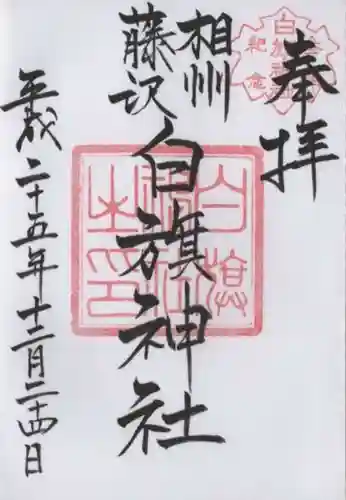 奉拝
相州
藤沢
白旗神社
平成二十五年十二月二十四日
白旗神社之印